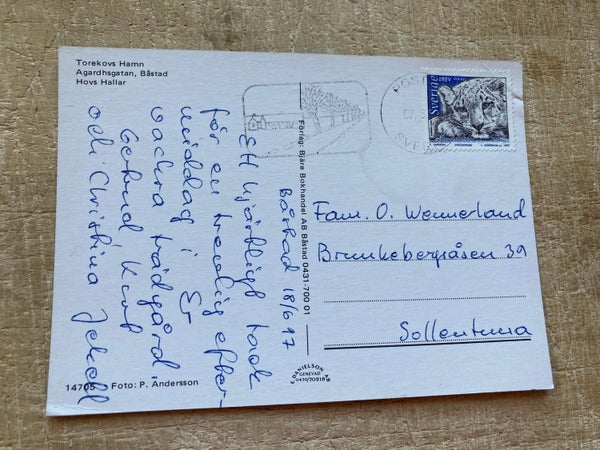 Torekovs Hamn
Agardhsgatan, Båstad
Hovs Hallar
Båstad 18/6 97
Ett hjärtligt tack
för en trevlig efter-
middag i Er
vackra trädgård.
Gertrud
och Christina
Förlag: Bjäre Bokhandel AB Båstad 0431-700 01
Sverige
BREV
POST
SVE
Fam. O. Wennerland
Brunkebergsåsen 39
Sollentuna
14705 Foto: P. Andersson
DANIELSON
GENEVAD